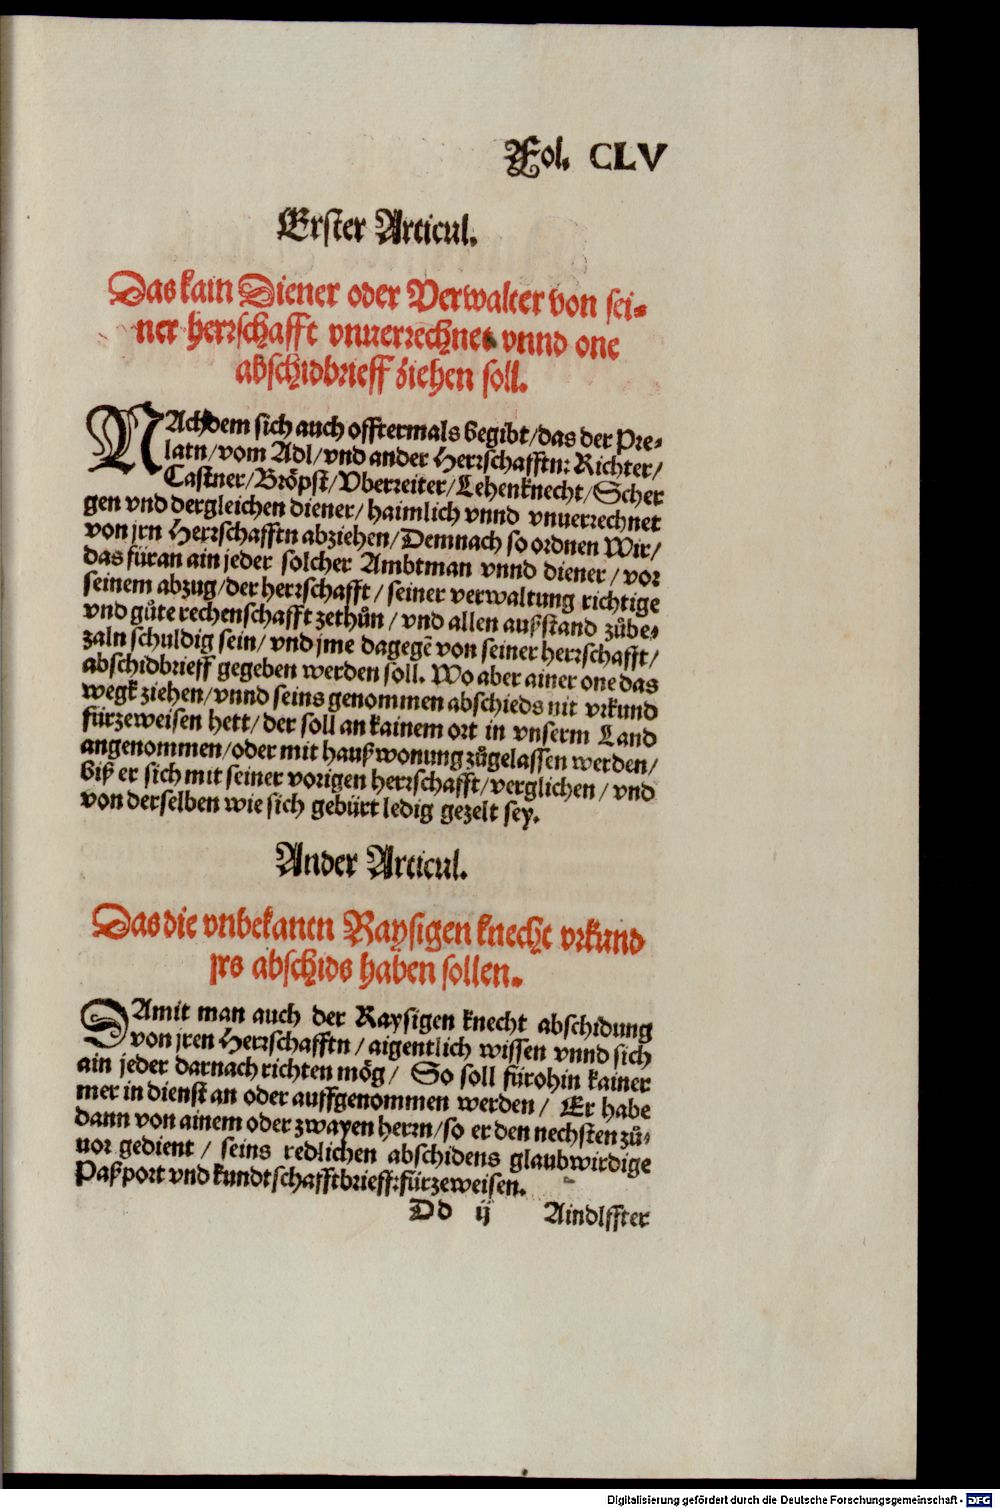 Fol. CLV
Erster Articul.
Das kain Diener oder Verwalter von sei⸗
ner herrschafft vnuerrechnet vnnd one
abschidbrieff ziehen soll.
NAchdem sich auch offtermals begibt/das der Pre⸗
latn/vom Adl/vnd ander Herrschafftn: Richter/
Castner/Bröpst/Vberreiter/Lehenknecht/Scher
gen vnd dergleichen diener/haimlich vnnd vnuerrechnet
von jrn Herrschafftn abziehen/Demnach so ordnen Wir/
das füran ain jeder solcher Ambtman vnnd diener/vor
seinem abzug/der herrschafft/seiner verwaltung richtige
vnd gůte rechenschafft zethůn/vnd allen außstand zůbe⸗
zaln schuldig sein/vnd jme dagegē von seiner herrschafft/
abschidbrieff gegeben werden soll. Wo aber ainer one das
wegk ziehen/vnnd seins genommen abschieds nit vrkund
fürzeweisen hett/der soll an kainem ort in vnserm Land
angenommen/oder mit haußwonung zůgelassen werden/
biß er sich mit seiner vorigen herrschafft/verglichen/vnd
von derselben wie sich gebürt ledig gezelt sey.
Ander Articul.
Das die vnbekantn Raysigen knecht vrkund
jrs abschids haben sollen.
DAmit man auch der Raysigen knecht abschidung
von jren Herrschafftn/aigentlich wissen vnnd sich
ain jeder darnach richten mög/ So soll fürohin kainer
mer in dienst an oder auffgenommen werden/ Er habe
dann von ainem oder zwayen herrn/so er den nechsten zů⸗
uor gedient/ seins redlichen abschidens glaubwirdige
Paßport vnd kundtschafftbrieff:fürzeweisen.
Dd ij Aindlffter
Digitalisierung gefördert durch die Deutsche Forschungsgemeinschaft - DFG